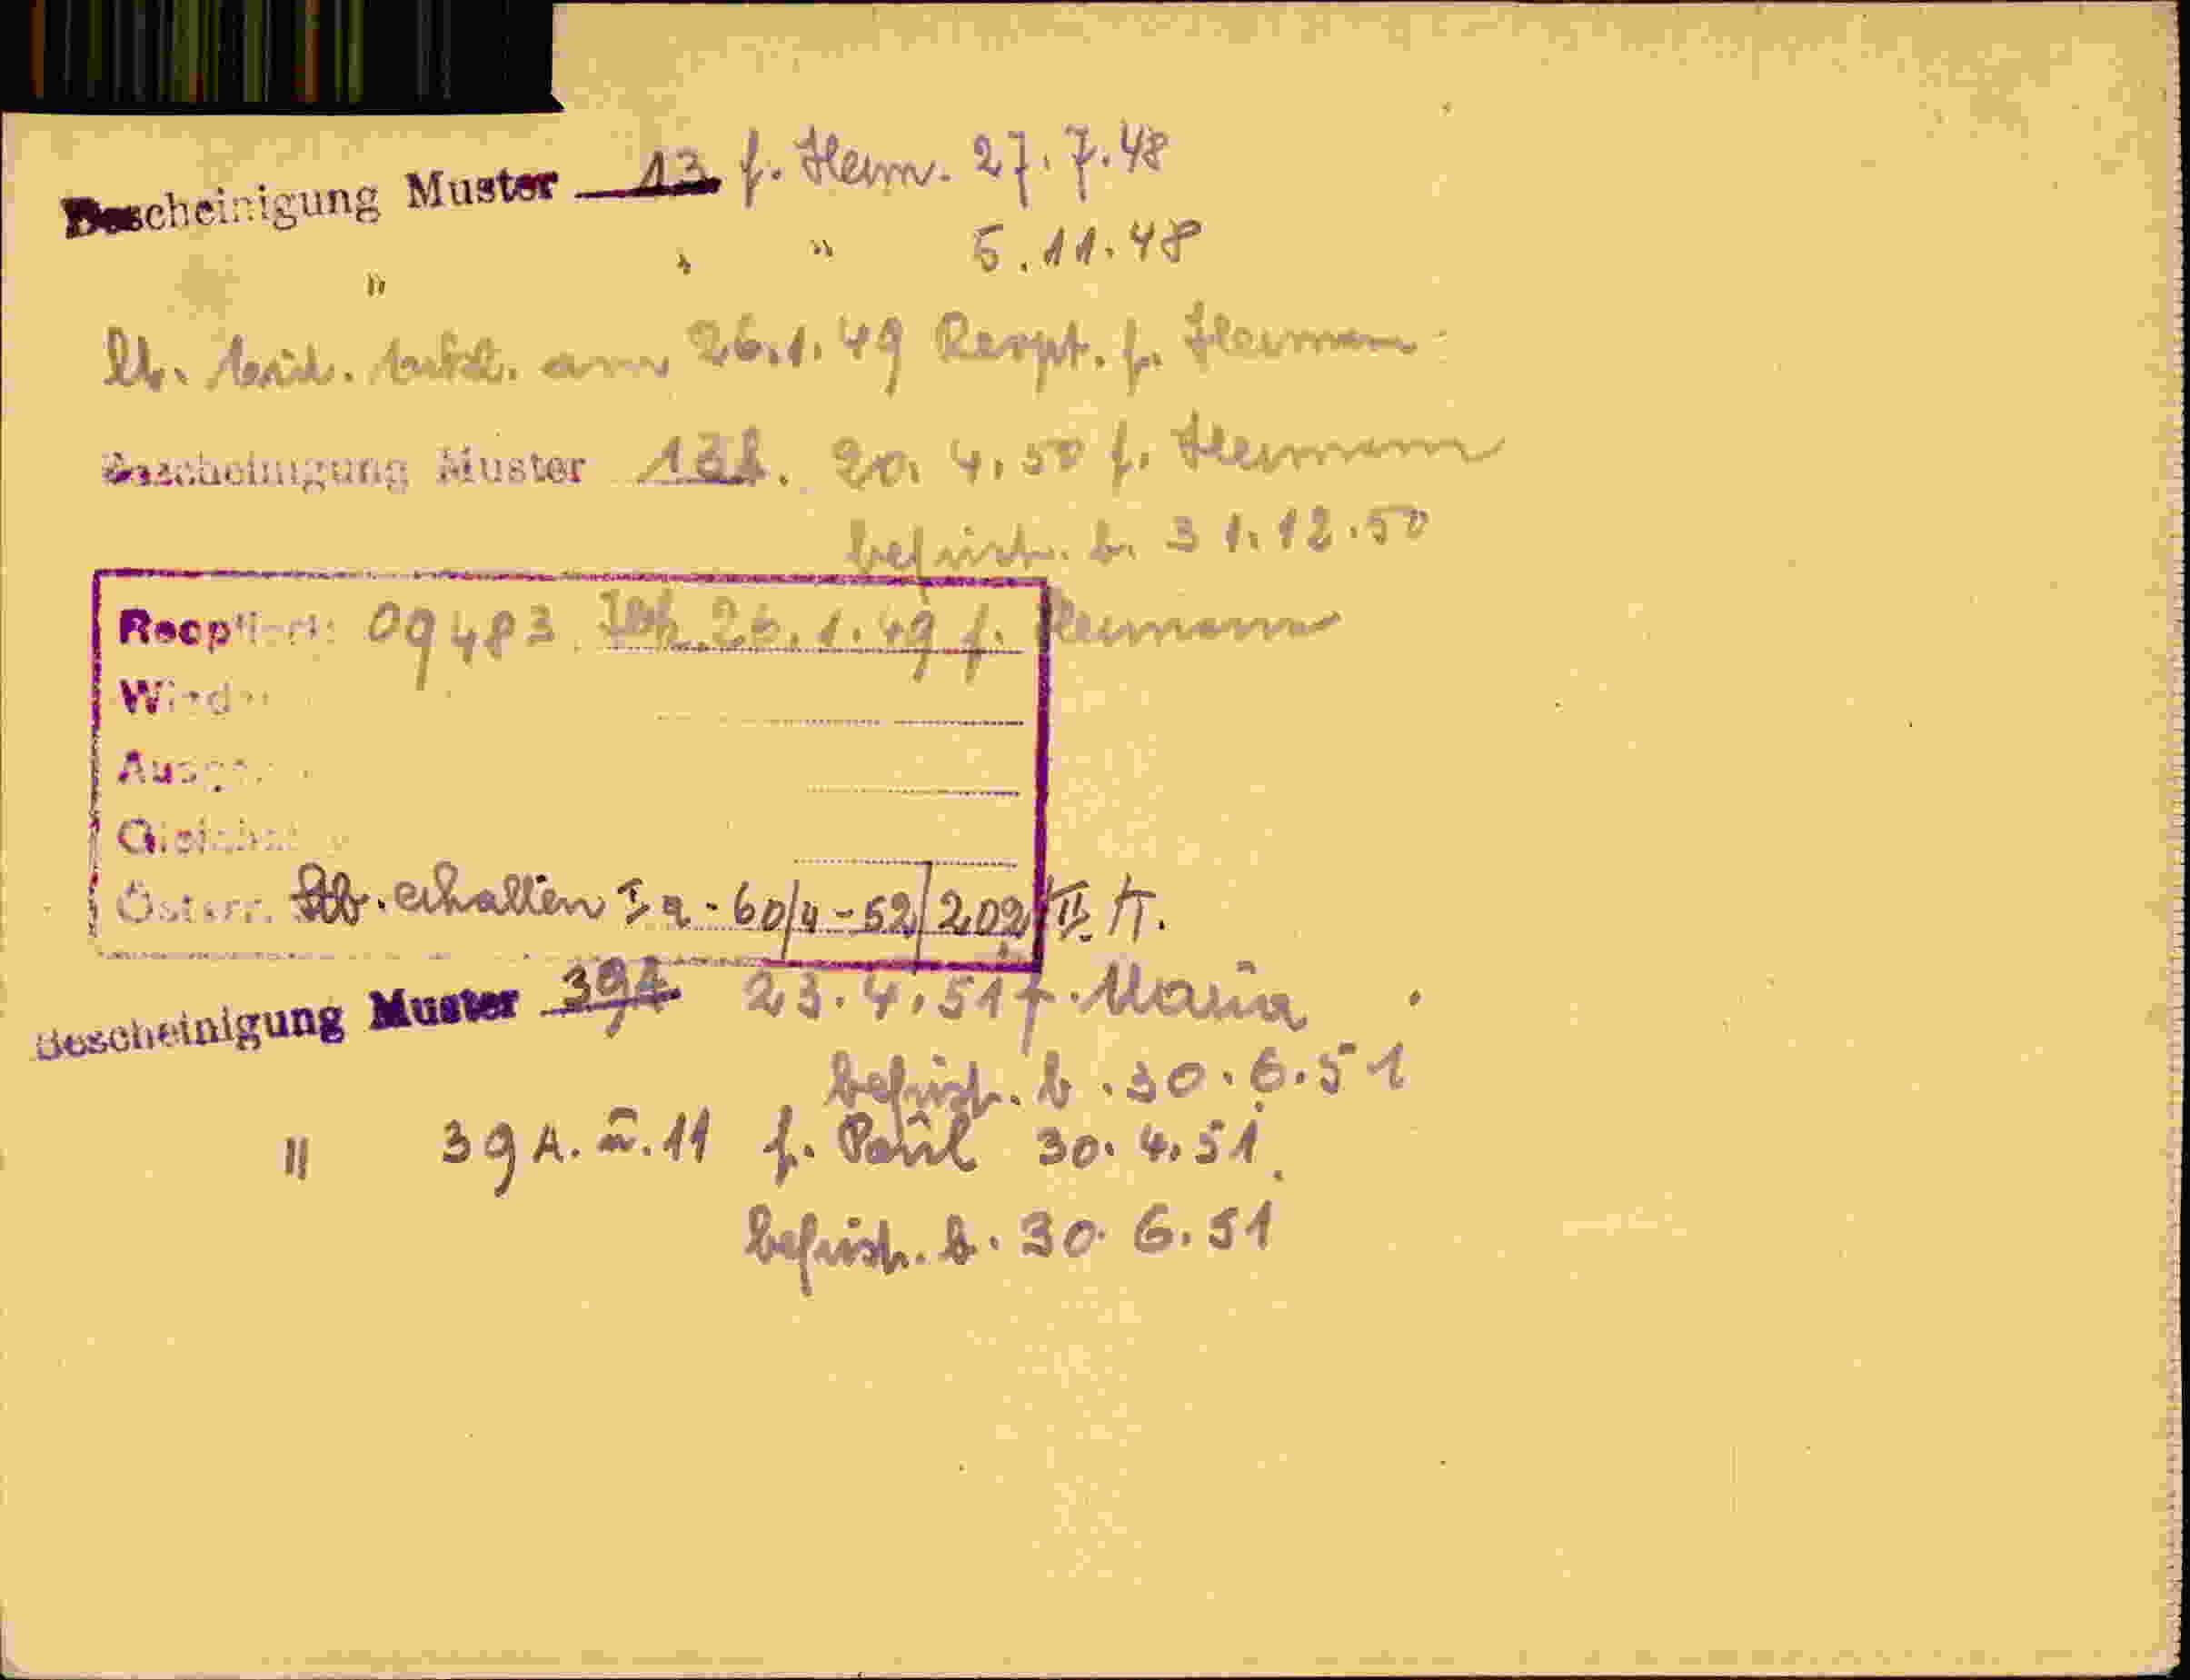 Bescheinigung Muster 13 f. Herm. 27.7.48
" " " 5.11.48
am 26.1.49 Reopt. f. Hermann
Bescheinigung Muster 13b. 20.4.50 f. Hermann
befrist. b. 31.12.50
Reoptiert: 09483 26.1.49 f. Hermann
Wieder
Ausge
Gleich
Österr. Stb. erhalten Ia-60/4-52/202 II A.
Bescheinigung Muster 39A 23.4.51 f. Maria
befrist. b. 30.6.51
" 39A. u. 11 f. Paul 30.4.51.
befrist. b. 30.6.51